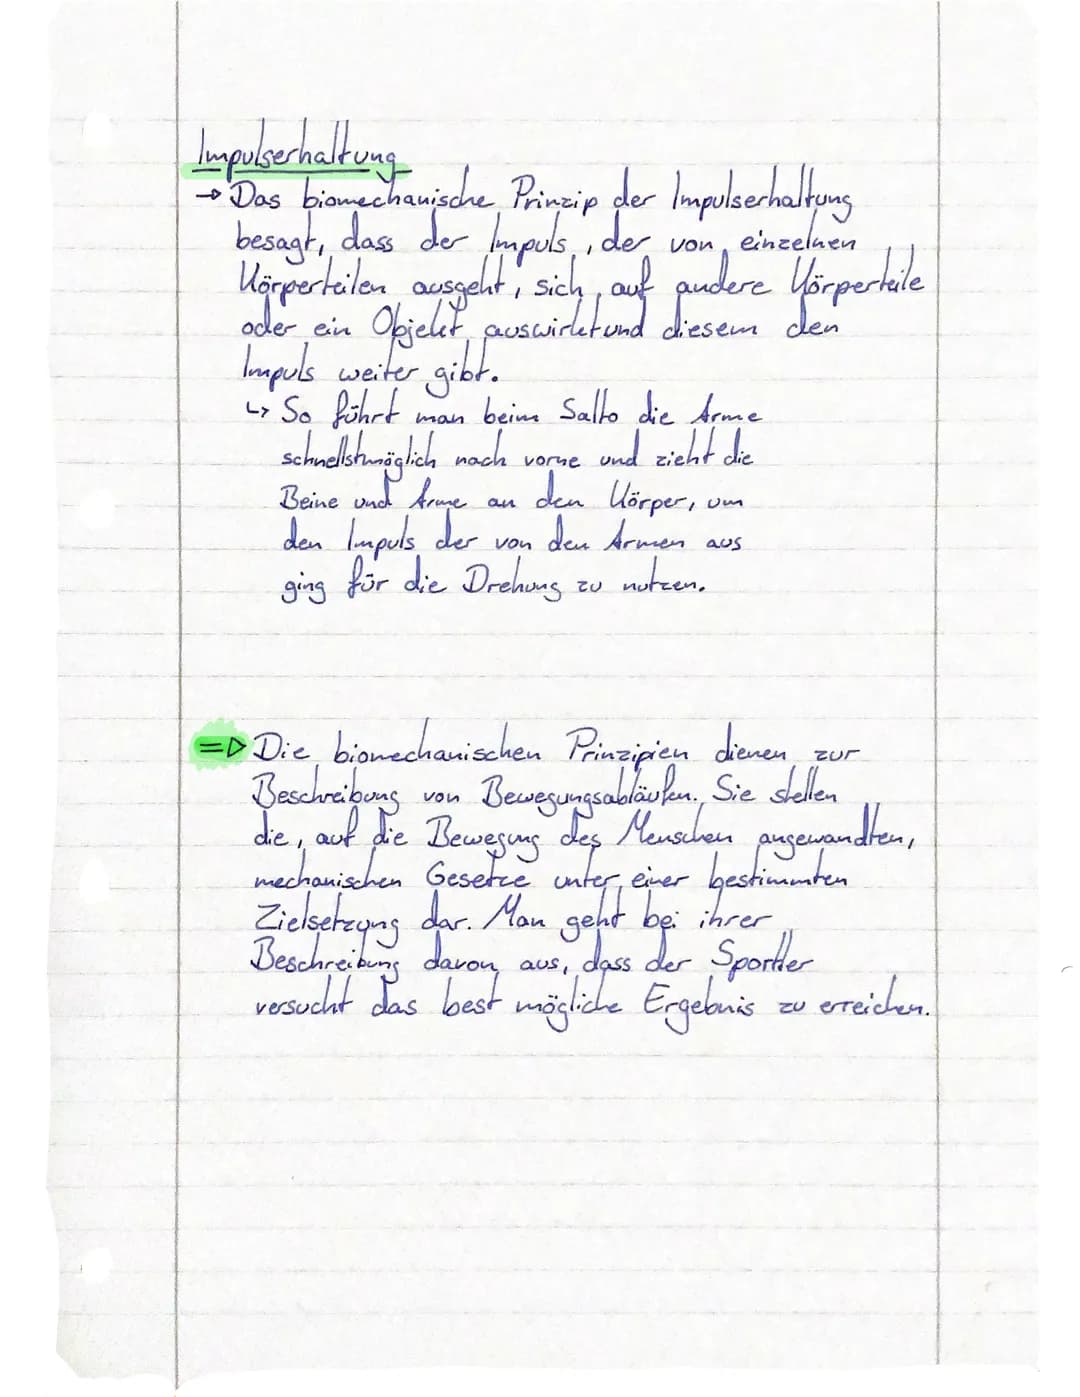 Impulserhaltung
→ Das biomechanische Prinzip der Impulserhaltung
besagt, dass der Impuls, der von einzelnen
Körperteilen ausgeht, sich auf andere Körperteile
oder ein Objekt auswirkt und diesem den
Impuls weiter gibt.
↳ So führt man beim Salto die Arme
schnellstmöglich nach vorne und zieht die
Beine und Arme an den Körper, um
den Impuls der von den Armen aus
ging für die Drehung zu nutzen.
=> Die biomechanischen Prinzipien dienen zur
Beschreibung von Bewegungsabläufen. Sie stellen
die, auf die Bewegung des Menschen angewandten,
mechanischen Gesetze unter einer bestimmten
Zielsetzung dar. Man geht bei ihrer
Beschreibung davon aus, dass der Sportler
versucht das best mögliche Ergebnis zu erreichen.